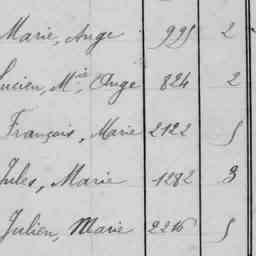 Marie, Ange 995 2
Lucien, Mie Ange 824 2
François, Marie 2122 5
Jules, Marie 1282 3
Julien, Marie 2216 5